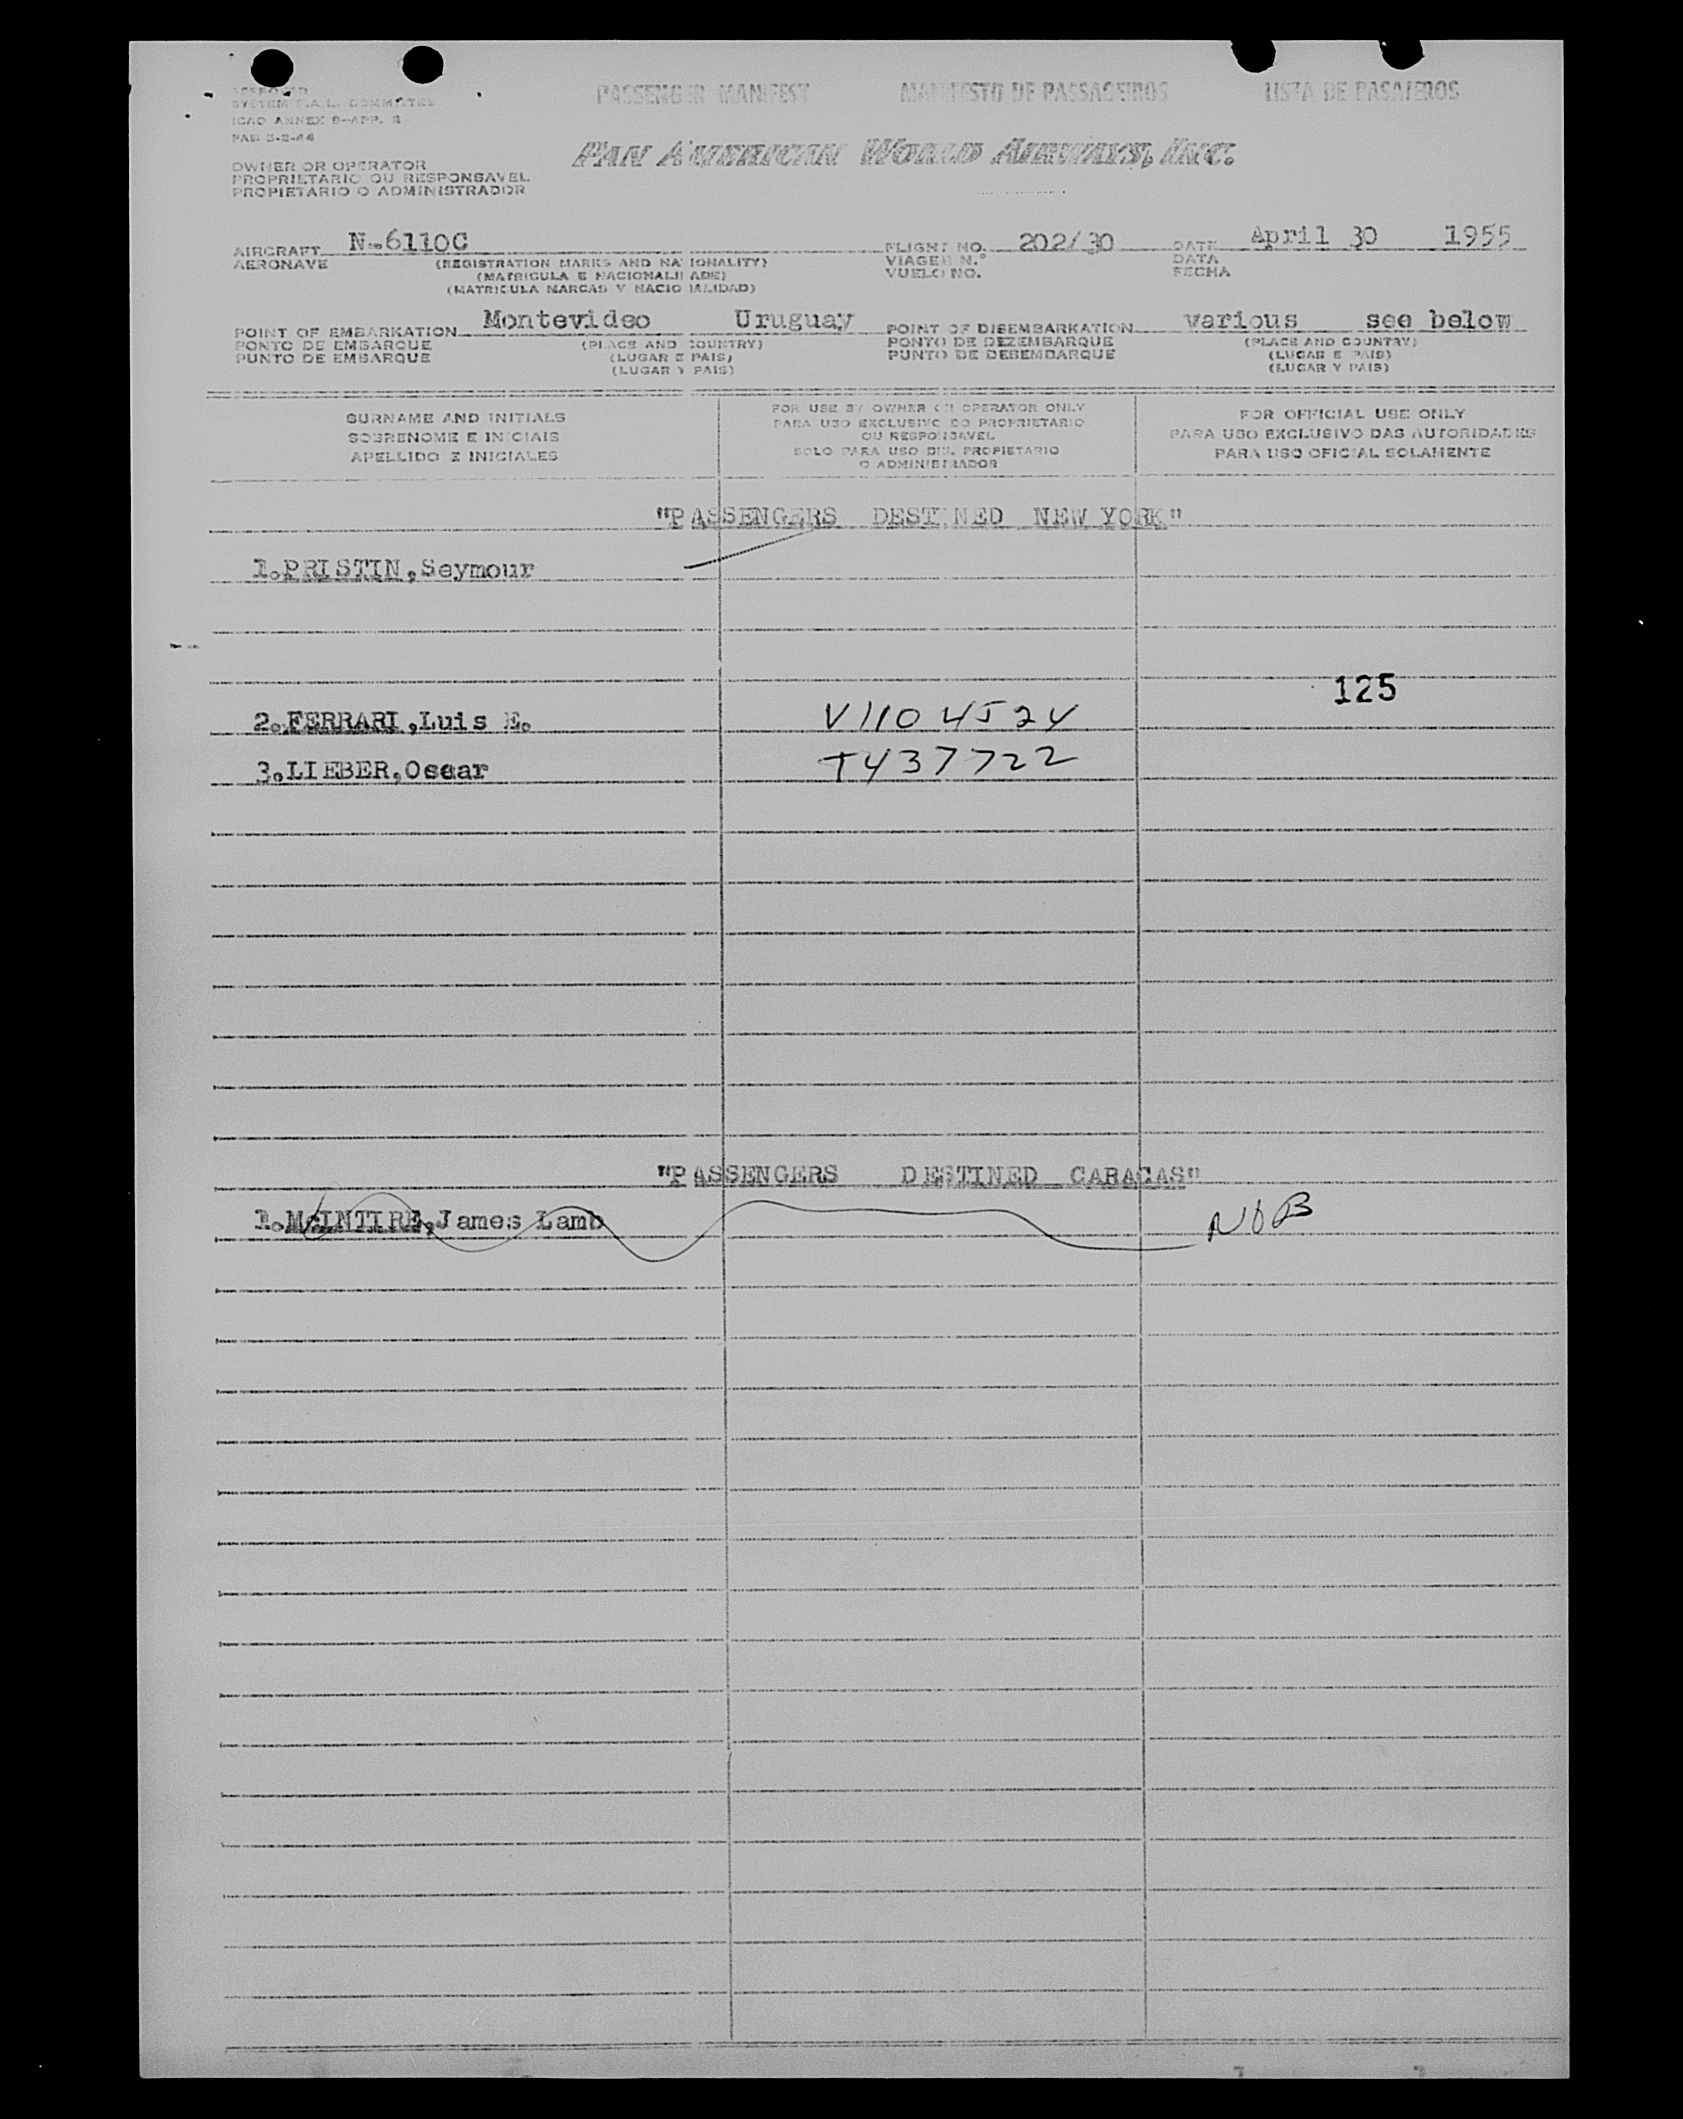 APPROVED
SYSTEM F.A.L. COMMITTEE
ICAO ANNEX 9-APP. 2
PASSENGER MANIFEST MANIFESTO DE PASSAGEIROS LISTA DE PASAJEROS
PAN AMERICAN WORLD AIRWAYS, INC.
OWNER OR OPERATOR
PROPRIETARIO OU RESPONSAVEL
PROPIETARIO O ADMINISTRADOR
AIRCRAFT N-6110C FLIGHT NO. 202/30 DATE April 30 1955
AERONAVE (REGISTRATION MARKS AND NATIONALITY) VIAGEM N.º DATA
(MATRICULA E NACIONALIDADE) VUELO NO. FECHA
(MATRICULA MARCAS Y NACIONALIDAD)
POINT OF EMBARKATION Montevideo Uruguay POINT OF DISEMBARKATION various see below
PONTO DE EMBARQUE (PLACE AND COUNTRY) PONTO DE DEZEMBARQUE (PLACE AND COUNTRY)
PUNTO DE EMBARQUE (LUGAR E PAIS) PUNTO DE DESEMBARQUE (LUGAR E PAIS)
(LUGAR Y PAIS) (LUGAR Y PAIS)
SURNAME AND INITIALS
SOBRENOME E INICIAIS
APELLIDO E INICIALES
FOR USE BY OWNER OR OPERATOR ONLY
PARA USO EXCLUSIVO DO PROPRIETARIO
OU RESPONSAVEL
SOLO PARA USO DEL PROPIETARIO
O ADMINISTRADOR
FOR OFFICIAL USE ONLY
PARA USO EXCLUSIVO DAS AUTORIDADES
PARA USO OFICIAL SOLAMENTE
"PASSENGERS DESTINED NEW YORK"
1.PRISTIN,Seymour
125
2.FERRARI,Luis E. V1104524
3.LIEBER,Oscar T437722
"PASSENGERS DESTINED CARACAS"
1.McINTIRE,James Lamb NOB